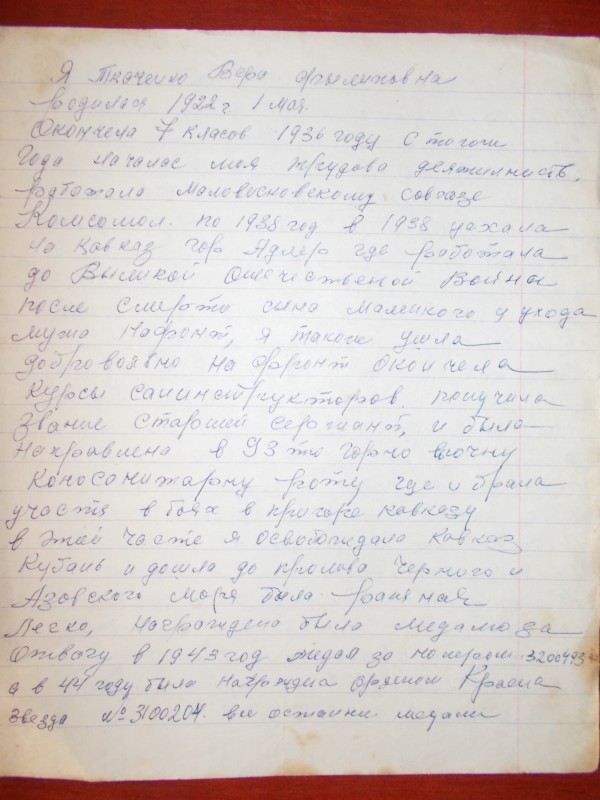 Я Ткаченко Вера Филиповна
родилася 1922 г 1 мая.
Окончела 7 класов 1936 году с тогоги
года началас моя трудова деятилност.
работала Маловисковскому совхозе
Комсомол. по 1938 год в 1938 уехала
на Кавказ гор Адлер где работала
до Выликой Отечественой Войны
после смерти сына маленкого и ухода
мужа На фронт, я также ушла
добровоявно на фронт окончела
курсы санинструкторов. получила
Звание старшей сержиант, и была
направлена в 93 тю горно вючну
коносанитарну роту где и брала
участя в боях в пригоре Кавказу
в этой часте я освобождала Кавказ
Кубань и дошла до пролива Черного и
Азовского моря была раненая
Легко, награждена была медалю за
Отвагу в 1943 год медал за номером 3200493
а в 44 году была награждиа орденом Красна
Звезда № 3100204. вы останни медали